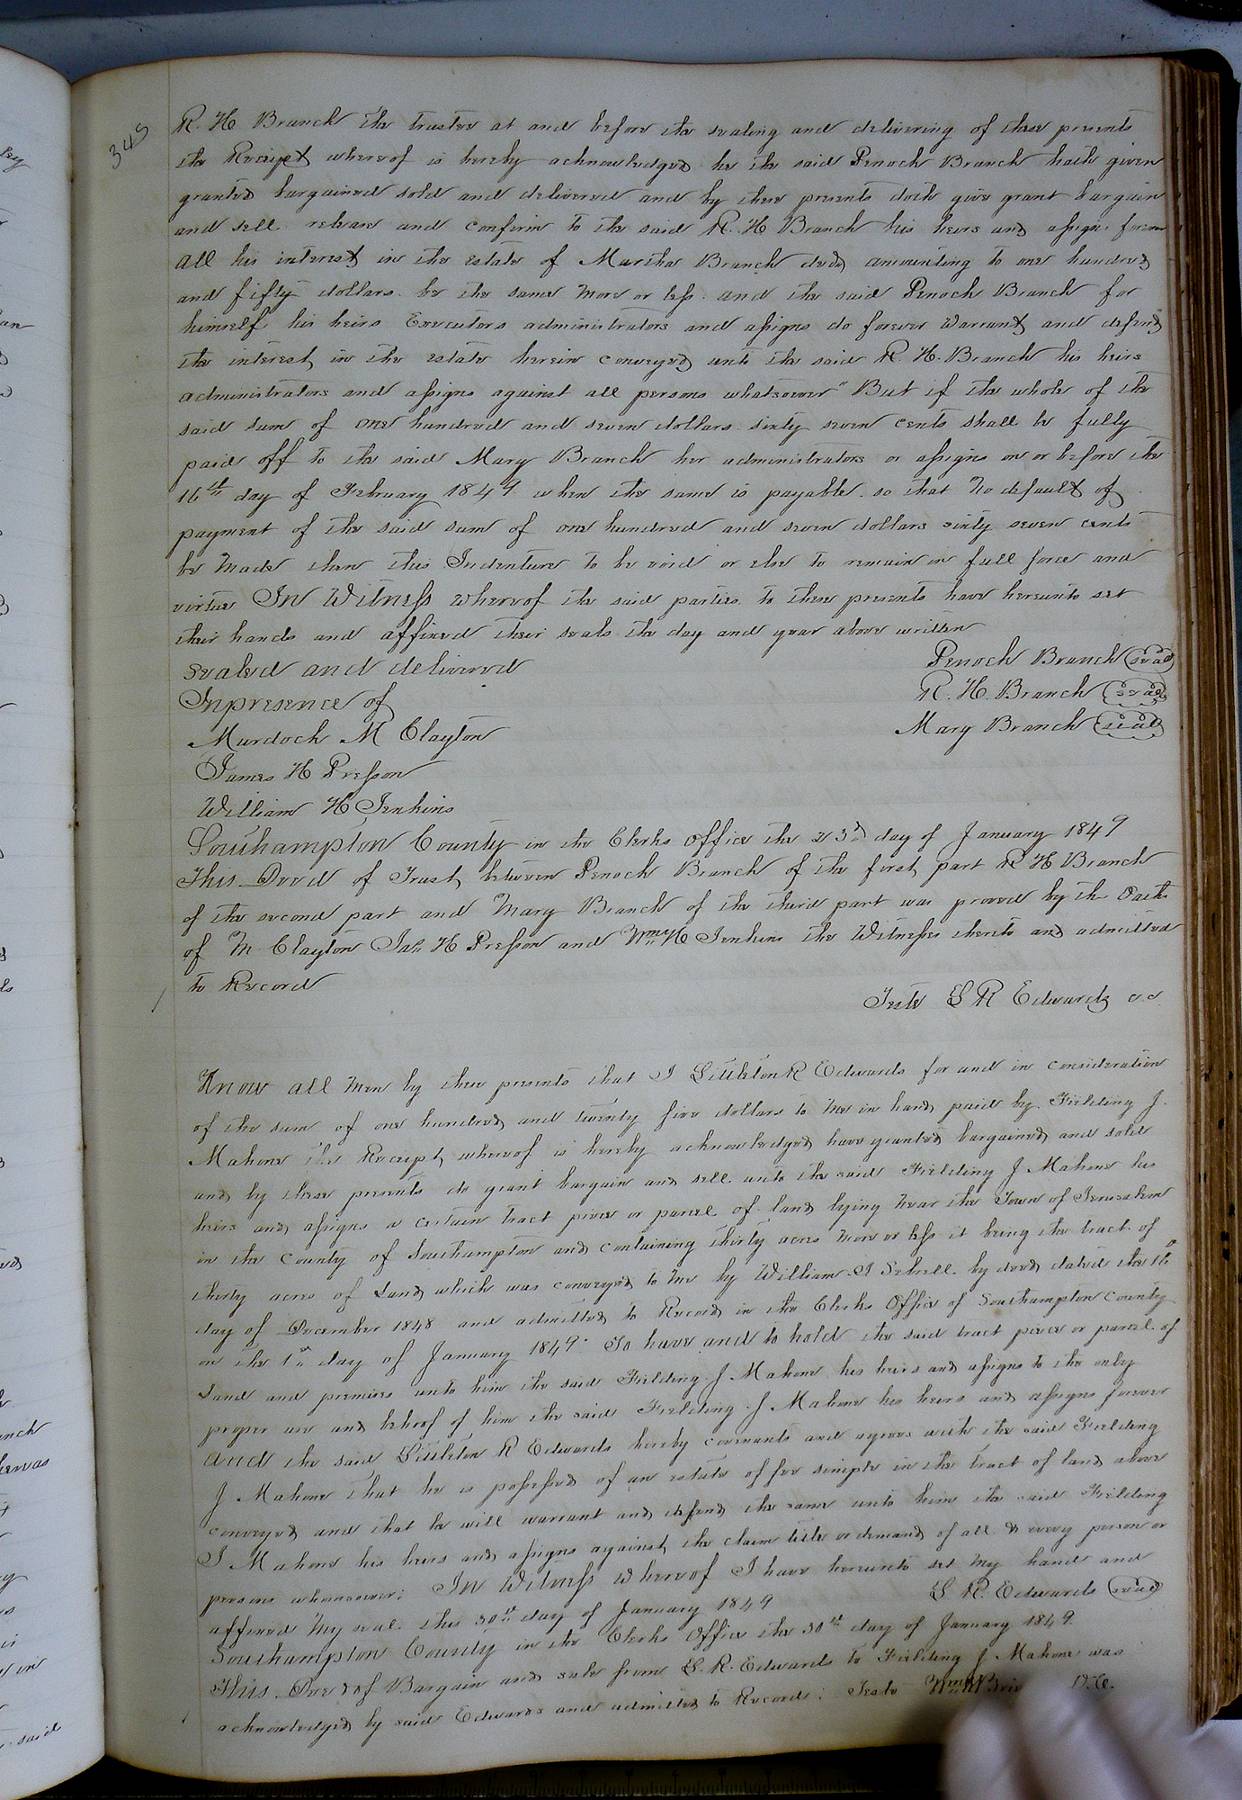 345
R. H Branch the trustee at and before the sealing and delivering of these presents
the Receipt whereof is hereby acknowledged he the said Penoch Branch hath given
granted bargained sold and delivered and by these presents doth give grant bargain
and sell release and confirm to the said R. H Branch his heirs and assigns forever
all his interest in the estate of Martha Branch decd, amounting to one hundred
and fifty dollars be the same more or less. and the said Penoch Branch for
himself his heirs Executors administrators and assigns do forever Warrant and defend
the interest in the estate herein conveyed unto the said R. H. Branch his heirs
administrators and assigns against all persons whatsoever" But if the whole of the
said sum of one hundred and seven dollars sixty seven cents shall be fully
paid off to the said Mary Branch her administrators or assigns on or before the
16th day of February 1849 when the same is payable. so that no default of
payment of the said sum of one hundred and seven dollars sixty seven cents
be made then this Indenture to be void or else to remain in full force and
virtue In Witness whereof the said parties to these presents have hereunto set
their hands and affixed their seals the day and year above written
Sealed and delivered Penoch Branch (seal)
Inpresence of R. H. Branch (seal)
Murdock M Clayton Mary Branch (seal)
James H Presson
William H Jenkins
Southampton County in the Clerks Office the 23d day of January 1849
This Deed of Trust, between Penoch Branch of the first part R H Branch
of the second part and Mary Branch of the third part was proved by the Oath
of M Clayton Jas. H Presson and Wm H Jenkins the Witnesses thereto and admitted
to Record
Teste L R Edwards c c
Know all men by these presents that I Littleton R Edwards for and in consideration
of the sum of one hundred and twenty five dollars to me in hand paid by Fielding J.
Mahone the Receipt, whereof is hereby acknowledged have granted bargained and sold
and by these presents do grant bargain and sell unto the said Fielding J Mahone his
heirs and assigns a certain tract piece or parcel of land lying near the Town of Jerusalem
in the County of Southampton and containing thirty acres more or less it being the tract of
thirty acres of Land which was conveyed to me by William I Sebrell by deed dated the 1th
day of December 1848 and admitted to Record in the Clerks Office of Southampton County
on the 1st day of January 1849. To have and to hold the said tract piece or parcel of
Land and premises unto him the said Fielding J Mahone his heirs and assigns to the only
proper use and behoof of him the said Fielding J Mahone his heirs and assigns forever
And the said Littleton R Edwards hereby covenants and agrees with the said Fielding
J Mahone that he is possessed of an estate of fee simple in the tract of land above
conveyed and that he will warrant and defend the same unto him the said Fielding
J Mahone his heirs and assigns against the claim title or demand of all & every person or
persons whomsoever: In Witness Whereof I have hereunto set my hand and
affixed my seal this 30th day of January 1849 L R. Edwards (seal)
Southampton County in the Clerks Office the 30th day of January 1849.
This Deed of Bargain and sale from L. R. Edwards to Fielding J Mahone was
acknowledged by said Edwards and admitted to Record: Teste D.C.